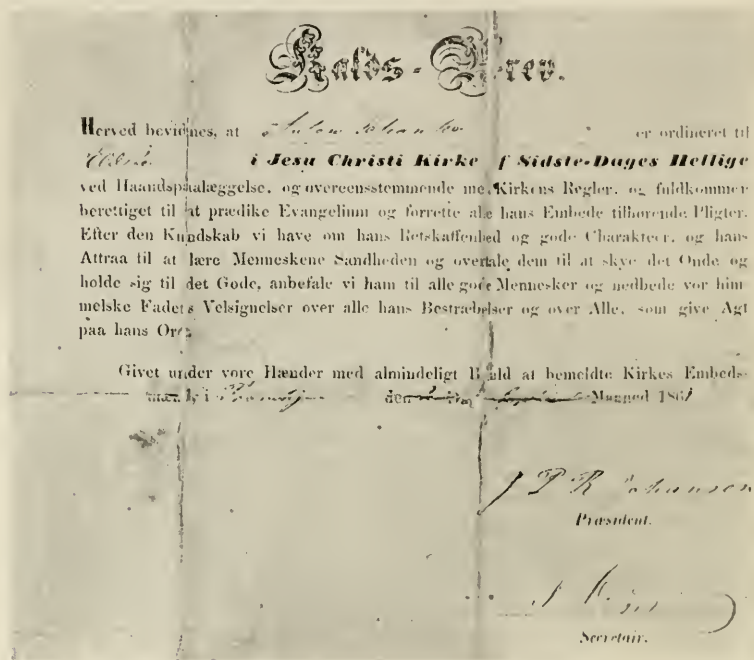 Kalds-Brev.
Herved bevidnes, at er ordineret til
i Jesu Christi Kirke af Sidste-Dages Hellige
ved Haandspaalæggelse, og overeensstemmende med Kirkens Regler, og fuldkommen
berettiget til at prædike Evangelium og forrette alle hans Embede tilhørende Pligter.
Efter den Kundskab vi have om hans Retskaffenhed og gode Charakteer, og hans
Attraa til at lære Menneskene Sandheden og overtale dem til at skye det Onde og
holde sig til det Gode, anbefale vi ham til alle gode Mennesker og nedbede vor him-
melske Faders Velsignelser over alle hans Bestræbelser og over Alle, som give Agt
paa hans Ord.
Givet under vore Hænder med almindeligt Raad at bemeldte Kirkes Embeds-
mænd, i den Maaned 186
J P R Johansen
Præsident.
Secretair.